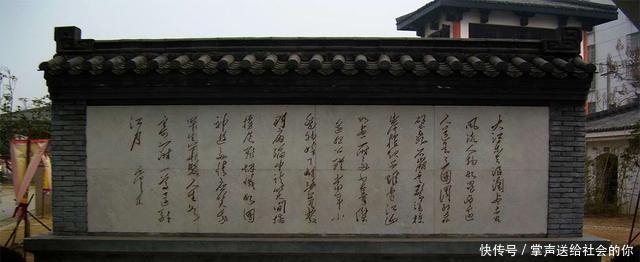 大江东去浪淘尽千古
风流人物故垒西边
人道是三国周郎赤
壁乱石
岸卷起千堆雪江山
如画一时多少豪杰
遥想公瑾当年小
乔初嫁了雄姿英发
羽扇纶巾谈笑间樯
橹灰飞烟灭故国
神游多情应笑我
早生华发人生如
一尊还酹
江月
快传号／掌声送给社会的你